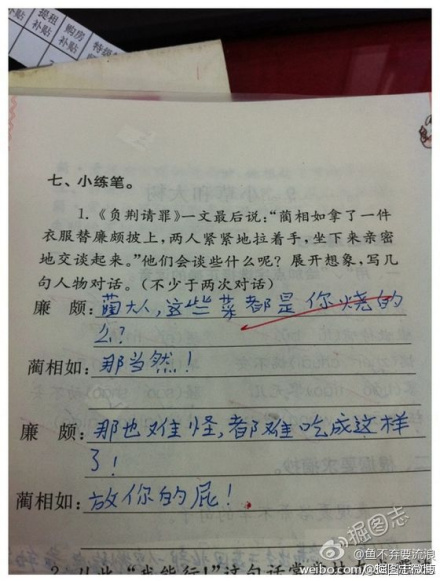 提租
补贴
购房
补贴
特级
七、小练笔。
1.《负荆请罪》一文最后说:“蔺相如拿了一件
衣服替廉颇披上,两人紧紧地拉着手,坐下来亲密
地交谈起来。”他们会谈些什么呢?展开想象,写几
句人物对话。(不少于两次对话)
廉 颇:蔺大人,这些菜都是你烧的
么?
蔺相如:那当然!
廉 颇:那也难怪,都难吃成这样
了!
蔺相如:放你的屁!
掘图志
@鱼不弃要流浪
weibo.com/@掘图志微博